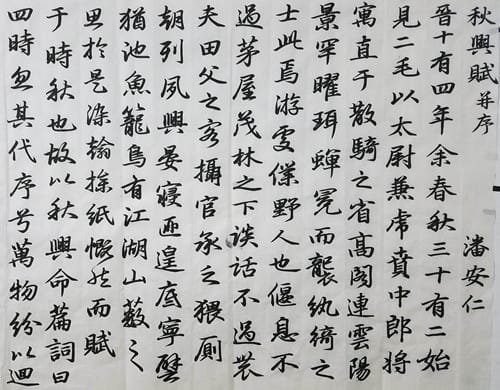 秋興賦并序 潘安仁
晉十有四年余春秋三十有二始
見二毛以太尉兼虎賁中郎將
寓直于散騎之省高閣連雲陽
景罕曜珥蟬冕而襲紈綺之
士此焉游處僕野人也偃息不
過茅屋茂林之下談話不過農
夫田父之客攝官承乏猥廁
朝列夙興晏寢匪遑底寧譬
猶池魚籠鳥有江湖山藪之
思於是染翰操紙慨然而賦
于時秋也故以秋興命篇詞曰
四時忽其代序兮萬物紛以迴